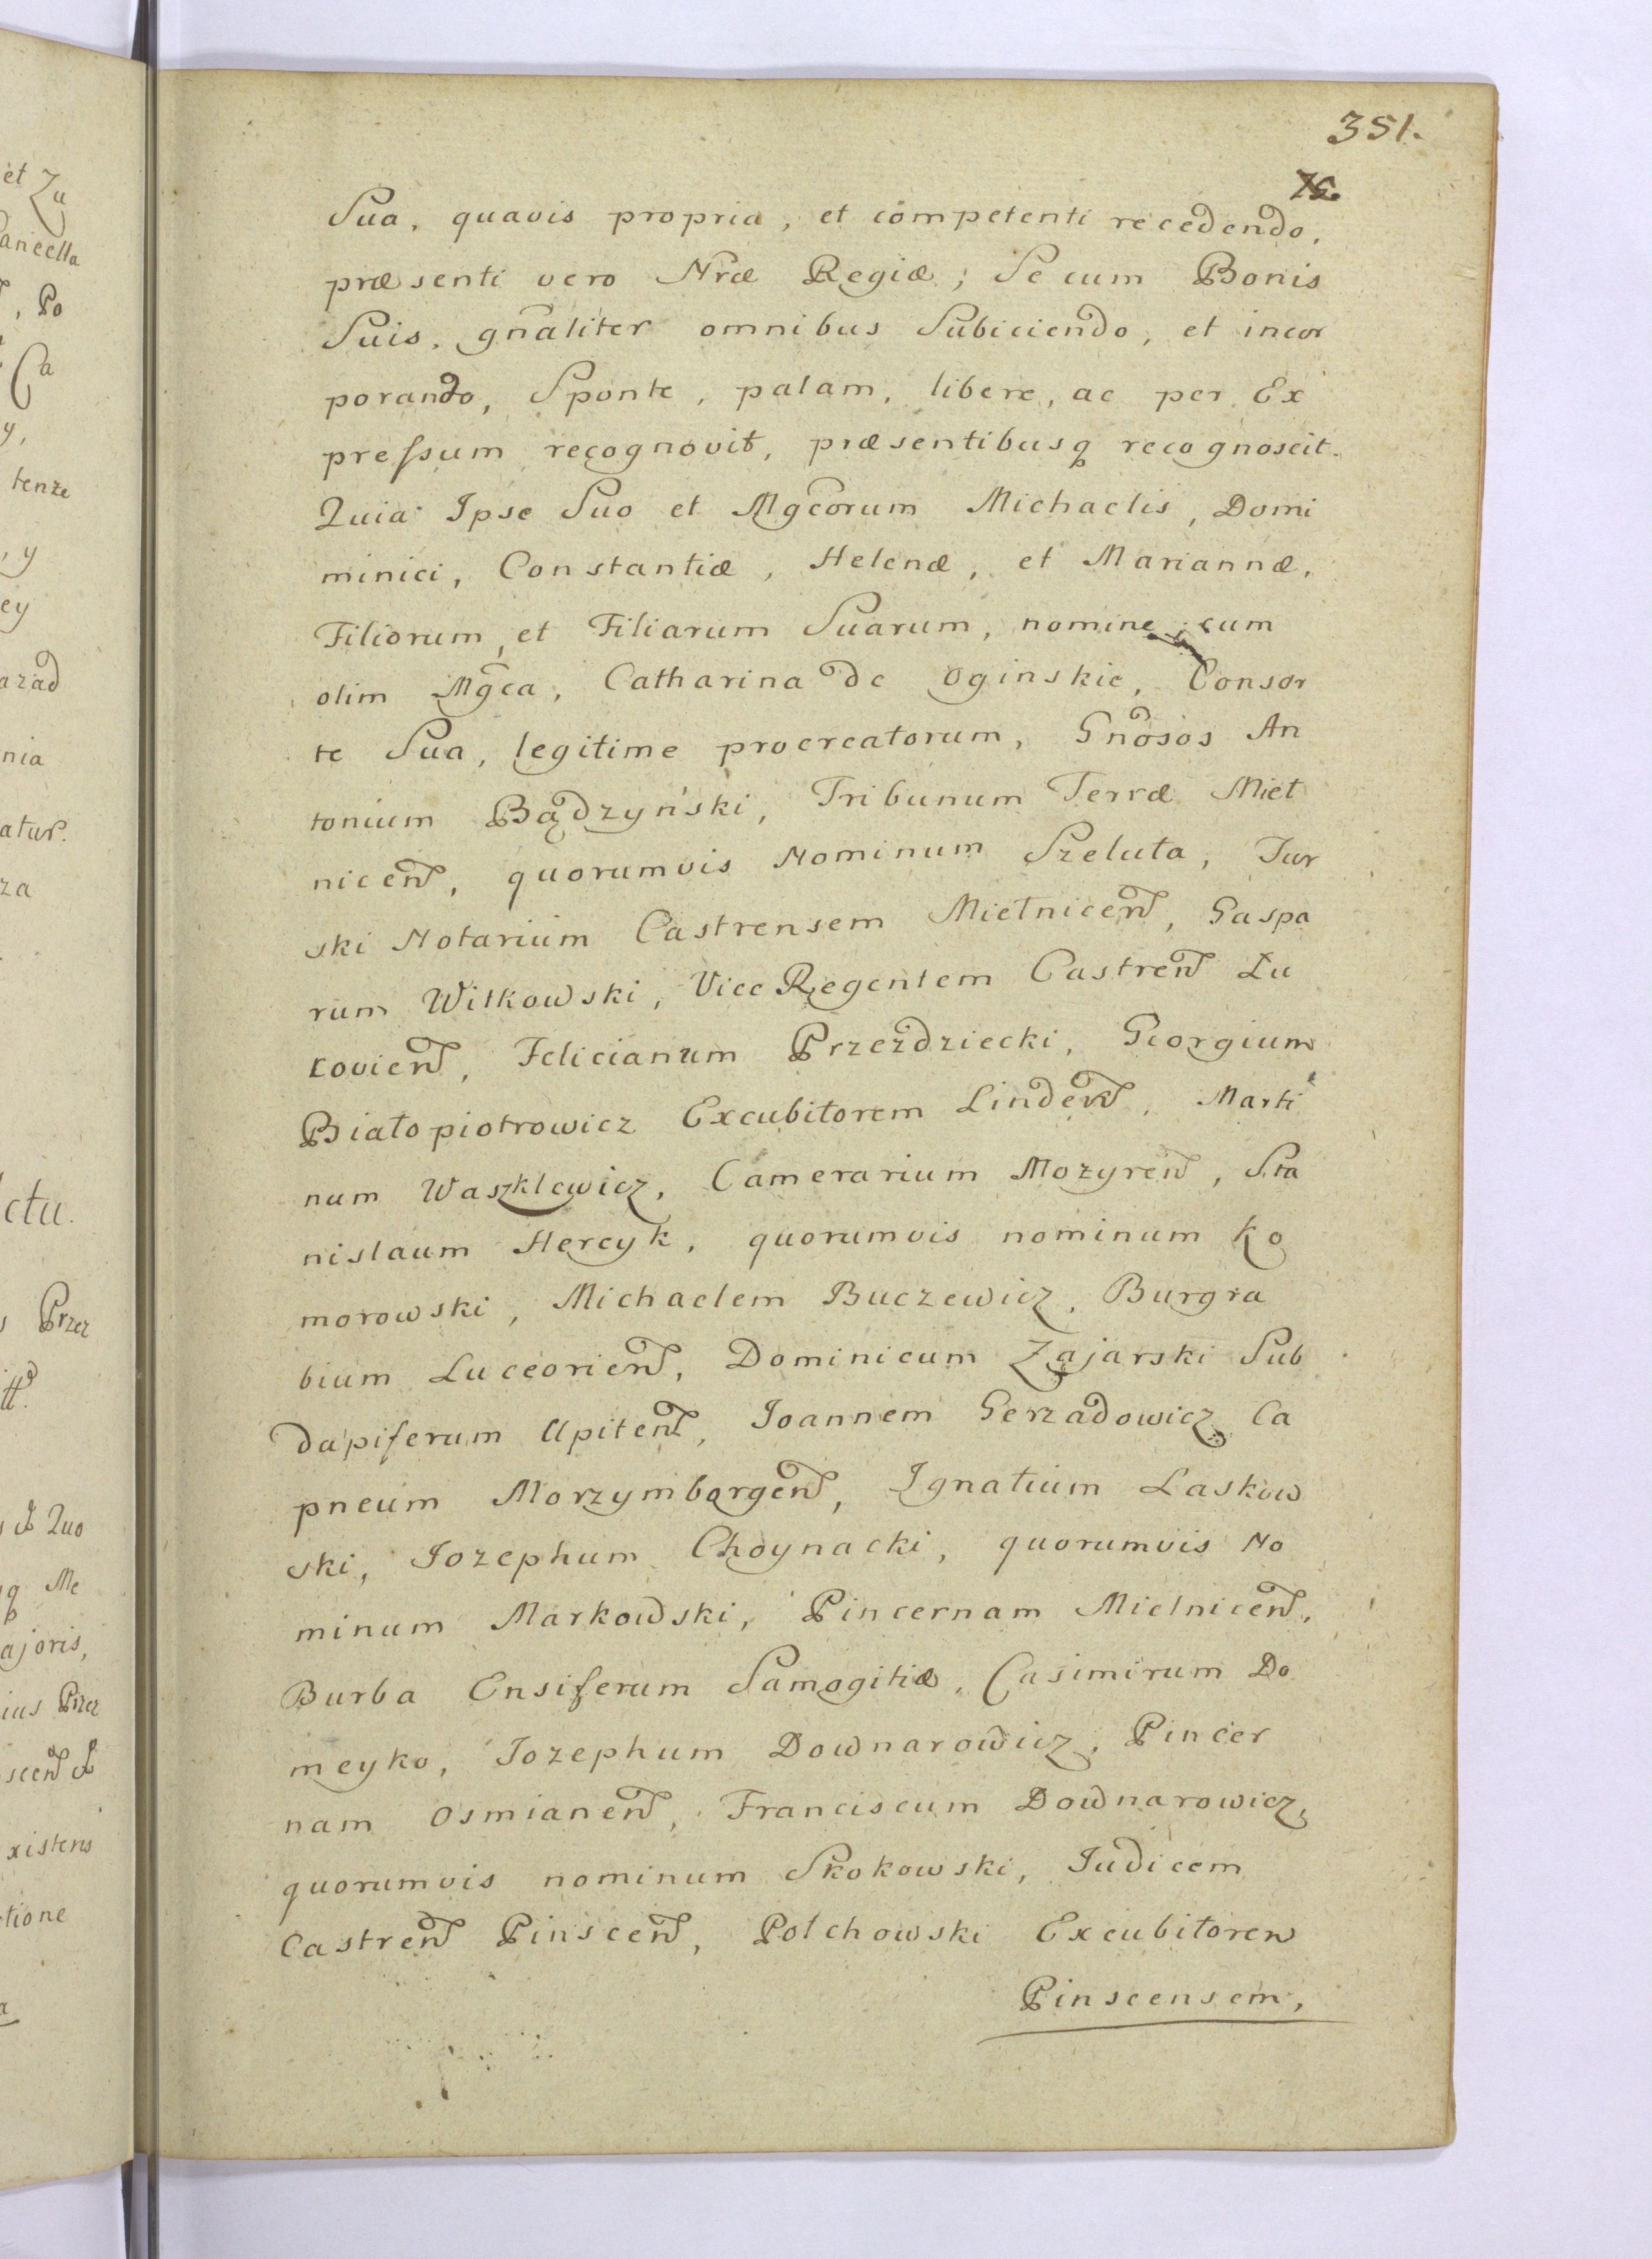 351.
Sua, quavis propria, et competenti recedendo,
præsenti vero Nræ Regiæ; Se cum Bonis
Suis, gñaliter omnibus Subiiciendo, et incor
porando, Sponte, palam, libere, ac per Ex
preſsum recognovit, præsentibusq recognoscit.
Quia Ipse Suo et Mgcorum Michaelis, Domi
minici, Constantiæ, Helenæ, et Mariannæ,
Filiorum, et Filiarum Suarum, nomine, cum
olim Mgca, Catharina de Oginskie, Consor
te Sua, legitime procreatorum, Gnosos An
tonium Bądzyński, Tribunum Terræ Miel
nicen, quorumvis Nominum Szeluta, Jur
ski Notarium Castrensem Mielnicen, Gaspa
rum Witkowski, Vice Regentem Castren Łu
kovien, Felicianum Przezdziecki, Georgium
Białopiotrowicz Excubitorem Linden, Marti
num Waszklewicz, Camerarium Mozyren, Sta
nislaum Hercyk, quorumvis nominum Ko
morowski, Michaelem Buczewicz, Burgra
bium Luceorien, Dominicum Zajarski Sub
dapiferum Upiten, Joannem Gerzadowicz Ca
pneum Morzymborgen, Ignatium Laskow
ski, Jozephum Choynacki, quorumvis No
minum Markowski, Pincernam Mielnicen,
Burba Ensiferum Samogitiæ, Casimirum Do
meyko, Jozephum Downarowicz, Pincer
nam Osmianen, Franciscum Downarowicz,
quorumvis nominum Skokowski, Judicem
Castren Pinscen, Polchowski Excubitorem
Pinscensem,
et Zu
ancella
, Po
Ca
y,
tenze
, y
ey
azad
nia
atur.
za
ctu.
Przez
Quo
q Me
ajoris,
ius Przez
scen
xistens
tione